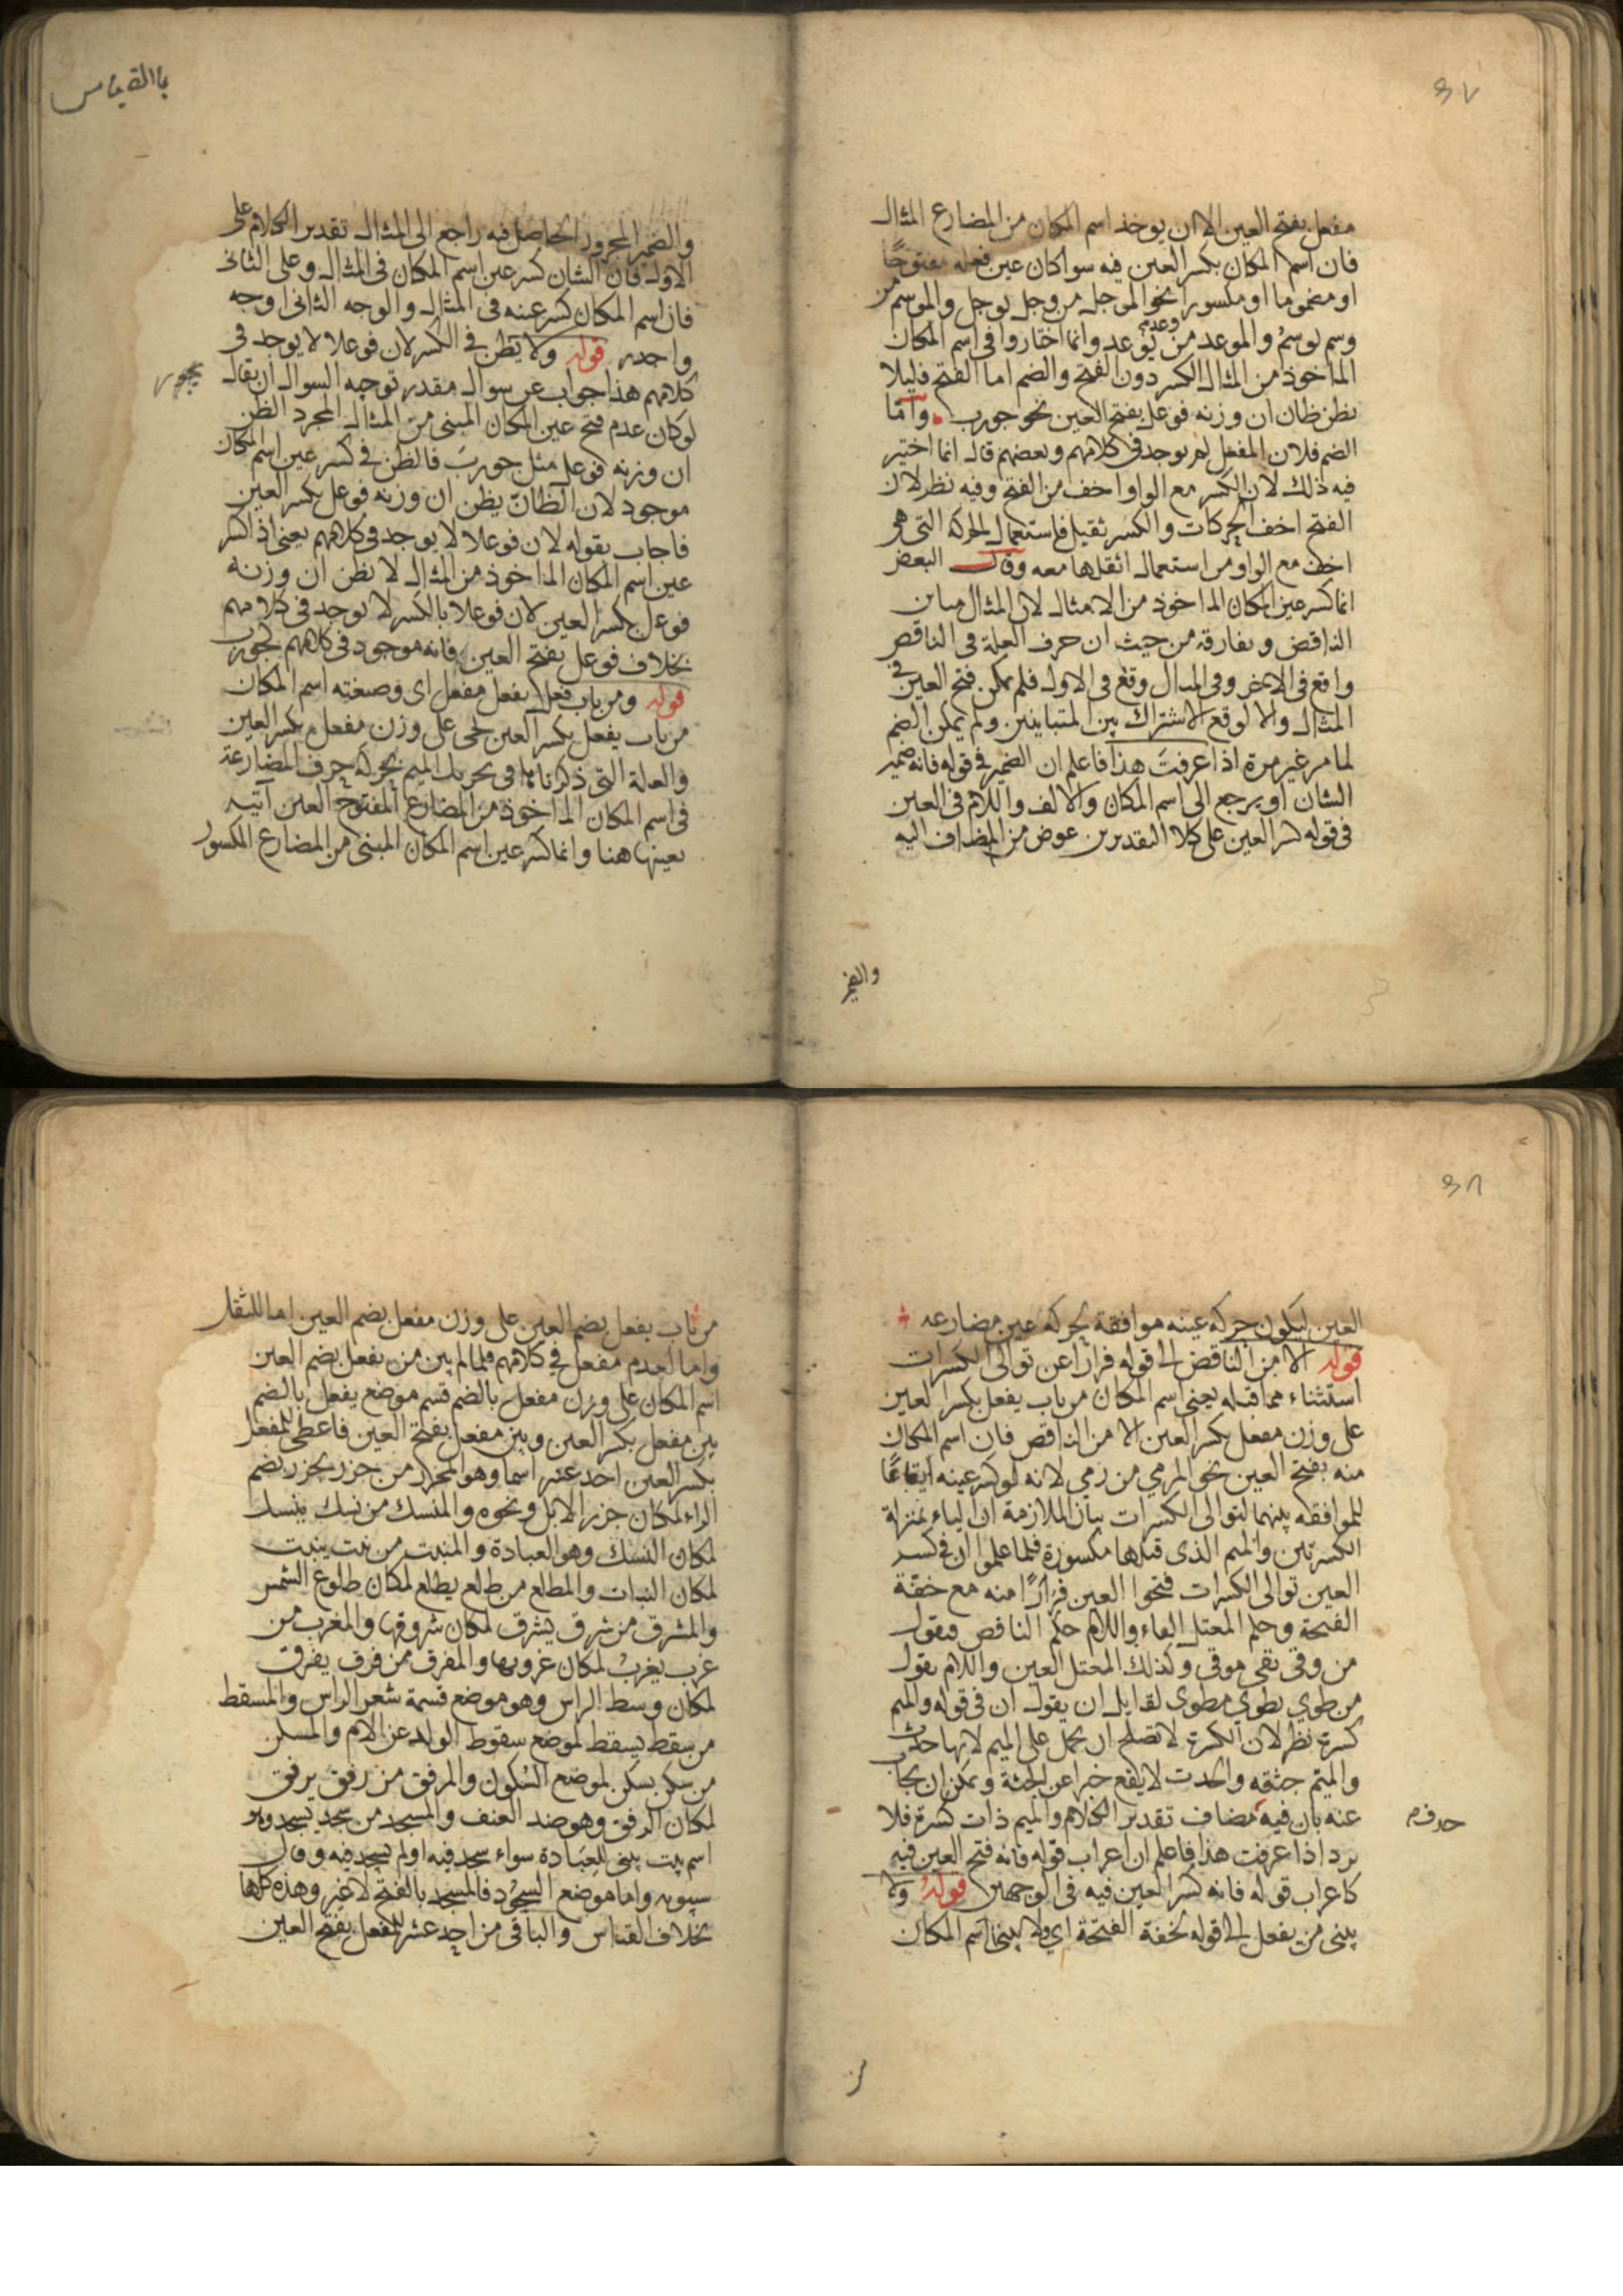 ٣٧
مفعل بفتح العين الا ان يوخذ اسم المكان من المضارع المثال
فان اسم المكان بكسر العين فيه سوا كان عين فعله مفتوحًا
او مضموما او مكسورا نحو الموجل من وجل يوجل والموسم من
وسم يوسم والموعد من وعد يوعد وانما اختاروا فى اسم المكان
الماخوذ من المثال الكسر دون الفتح والضم اما الفتح فليلا
يظن ظان ان وزنه فوعل بفتح العين نحو جورب واما
الضم فلان المفعل لم يوجد فى كلامهم وبعضهم قال انما اختير
فيه ذلك لان الكسر مع الواو اخف من الفتح وفيه نظر لان
الفتح اخف الحركات والكسر ثقيل فاستعمال الحركة التى هى
اخف مع الواو من استعمال اثقلها معه وقال البعض
انما كسر عين المكان الماخوذ من الامثال لان المثال مباين
الناقص ومفارقه من حيث ان حرف العلة فى الناقص
واقع فى الاخر وفى المثال وقع فى الاول فلم يمكن فتح العين فى
المثال والا لوقع الاشتراك بين المتباينين ولم يمكن الضم
لما مر غير مرة اذا عرفت هذا فاعلم ان الضمير فى قوله فانه ضمير
الشان او يرجع الى اسم المكان والالف واللام فى العين
فى قوله كسر العين على كلا التقديرين عوض من المضاف اليه
والضمير
باالقياس
والضمير المجرور الحاصل فيه راجع الى المثال تقدير الكلام على
الاول فان الشان كسر عين اسم المكان فى المثال وعلى الثانى
فان اسم المكان كسر عينه فى المثال والوجه الثانى اوجه
واجدر قوله ولا يظن فى الكسر لان فوعلا لا يوجد فى
كلامهم هذا جواب عن سوال مقدر توجيه السوال ان يقال
لو كان عدم فتح عين المكان المبنى من المثال لمجرد الظن
ان وزنه فوعل مثل جورب فالظن فى كسر عين اسم المكان
موجود لان الظانّ يظن ان وزنه فوعل بكسر العين
فاجاب بقوله لان فوعلا لا يوجد فى كلامهم يعنى اذ كسر
عين اسم المكان الماخوذ من المثال لا يظن ان وزنه
فوعل بكسر العين لان فوعلا بالكسر لا يوجد فى كلامهم
بخلاف فوعل بفتح العين فانه موجود فى كلامهم كجورب
قوله ومن باب فعل يفعل مفعل اى وصيغته اسم المكان
من باب يفعل بكسر العين تجى على وزن مفعل بكسر العين
والعلة التى ذكرناها فى تحريك الميم بحركة حرف المضارعة
فى اسم المكان الماخوذ من المضارع المفتوح العين آتيه
بعينها هنا وانما كسر عين اسم المكان المبنى من المضارع المكسور
٣٨
العين ليكون حركة عينه موافقة بحركة عين مضارعه
قوله الا من الناقص الى قوله فرارا عن توالى الكسرات
استثناء مما قبله يعنى اسم المكان من باب يفعل بكسر العين
على وزن مفعل بكسر العين الا من الناقص فان اسم المكان
منه بفتح العين نحو المرمي من رمي لانه لو كسر عينه ايقاعًا
للموافقه بينهما لتوالى الكسرات بيان الملازمة ان الياء بمنزلة
الكسرتين والميم الذى قبلها مكسورة فلما علموا ان فى كسر
العين توالى الكسرات فتحوا العين فرارًا منه مع خفّة
الفتحة وحكم المعتل الفاء واللام حكم الناقص فيقول
من وقى يقى موقى وكذلك المعتل العين واللام يقول
من طوي يطوي مطوى لقايل ان يقول ان فى قوله والميم
كسرة نظر لان الكسرة لا تصلح ان تحمل على الميم لانها حدث
والميم جثه والحدث لا يقع خبرا عن الجثة ويمكن ان يجاب
عنه بان فيه مضاف تقدير الكلام والميم ذات كسرة فلا
يرد اذا عرفت هذا فاعلم ان اعراب قوله فانه فتح العين فيه
كاعراب قوله فانه كسر العين فيه فى الوجهين قوله ولا
يبنى من يفعل الى قوله لخفة الفتحة اى ولا يبنى اسم المكان
من
من باب يفعل بضم العين على وزن مفعل بضم العين اما للثقل
واما لعدم مفعل فى كلامهم فلما لم يبن من يفعل بضم العين
اسم المكان على وزن مفعل بالضم قسم موضع يفعل بالضم
بين مفعل بكسر العين وبين مفعل بفتح العين فاعطى للمفعل
بكسر العين احد عشر اسما وهو المجزر من جزر يجزر بضم
الراء لمكان جزر الابل ونحوه والمنسك من نسك ينسك
لمكان النسك وهو العبادة والمنبت من نبت ينبت
لمكان النبات والمطلع من طلع يطلع لمكان طلوع الشمس
والمشرق من شرق يشرق لمكان شروقها والمغرب من
غرب يغرب لمكان غروبها والمفرق من فرق يفرق
لمكان وسط الراس وهو موضع قسمة شعر الراس والمسقط
من سقط يسقط لموضع سقوط الولد عن الام والمسكن
من سكن يسكن لموضع السكون والمرفق من رفق يرفق
لمكان الرفق وهو ضد العنف والمسجد من سجد يسجد وهو
اسم بيت يبنى للعبادة سواء سجد فيه او لم يسجد فيه وقال
سيبويه واما موضع السجود فالمسجد بالفتح لا غير وهذه كلها
بخلاف القياس والباقى من احد عشر للمفعل بفتح العين